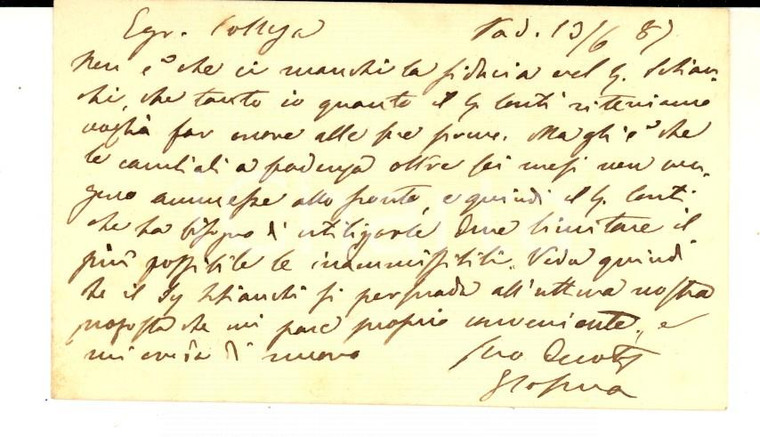 Egr. Collega Pad. 13/6 87
Non è che ci manchi la fiducia nel Sg. Schian-
chi, che tanto io quanto il Sg Conti riteniamo
voglia far onore alle sue firme. Ma gli è che
le cambiali a scadenza oltre sei mesi non ven-
gono ammesse allo sconto, e quindi il Sg. Conti
che ha bisogno di utilizzarle deve limitare il
più possibile le inammissibili. Veda quindi
che il Sg Schianchi si persuada all'ultima nostra
proposta che mi pare proprio conveniente, e
mi creda di nuovo suo Devot